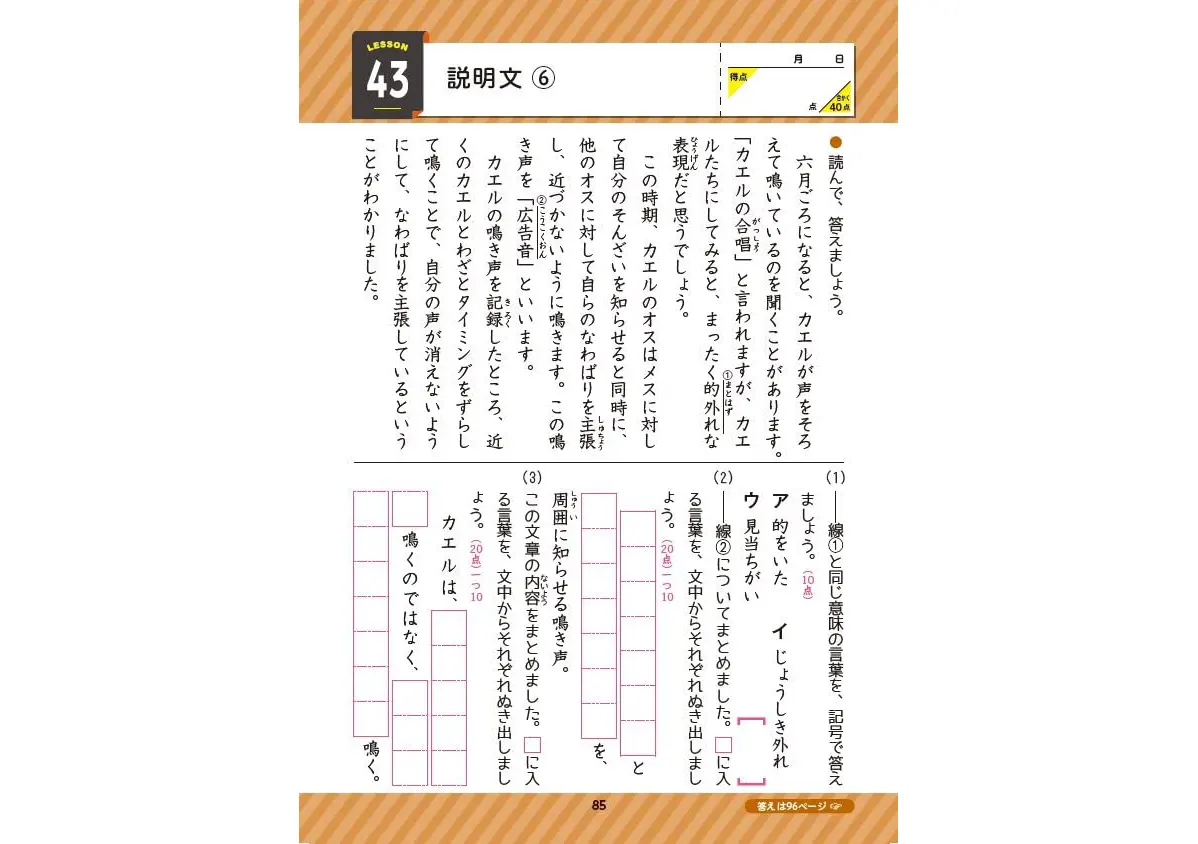 LESSON
43
説明文 ⑥
月 日
得点
点
合かく
40点
● 読んで、答えましょう。
六月ごろになると、カエルが声をそろ
えて鳴いているのを聞くことがあります。
「カエルの合唱」と言われますが、カエ
がっしょう
ルたちにしてみると、まったく的外れな
①まとはず
表現だと思うでしょう。
ひょうげん
この時期、カエルのオスはメスに対し
て自分のそんざいを知らせると同時に、
他のオスに対して自らのなわばりを主張
しゅちょう
し、近づかないように鳴きます。この鳴
き声を「広告音」といいます。
②こうこくおん
カエルの鳴き声を記録したところ、近
きろく
くのカエルとわざとタイミングをずらし
て鳴くことで、自分の声が消えないよう
にして、なわばりを主張しているという
ことがわかりました。
(1) ――線①と同じ意味の言葉を、記号で答え
ましょう。(10点)
ア 的をいた イ じょうしき外れ
ウ 見当ちがい
(2) ――線②についてまとめました。□に入
る言葉を、文中からそれぞれぬき出しまし
ょう。(20点)一つ10
と
を、
周囲に知らせる鳴き声。
しゅうい
(3) この文章の内容をまとめました。□に入
ないよう
る言葉を、文中からそれぞれぬき出しまし
ょう。(20点)一つ10
カエルは、
鳴くのではなく、
鳴く。
85
答えは96ページ☞